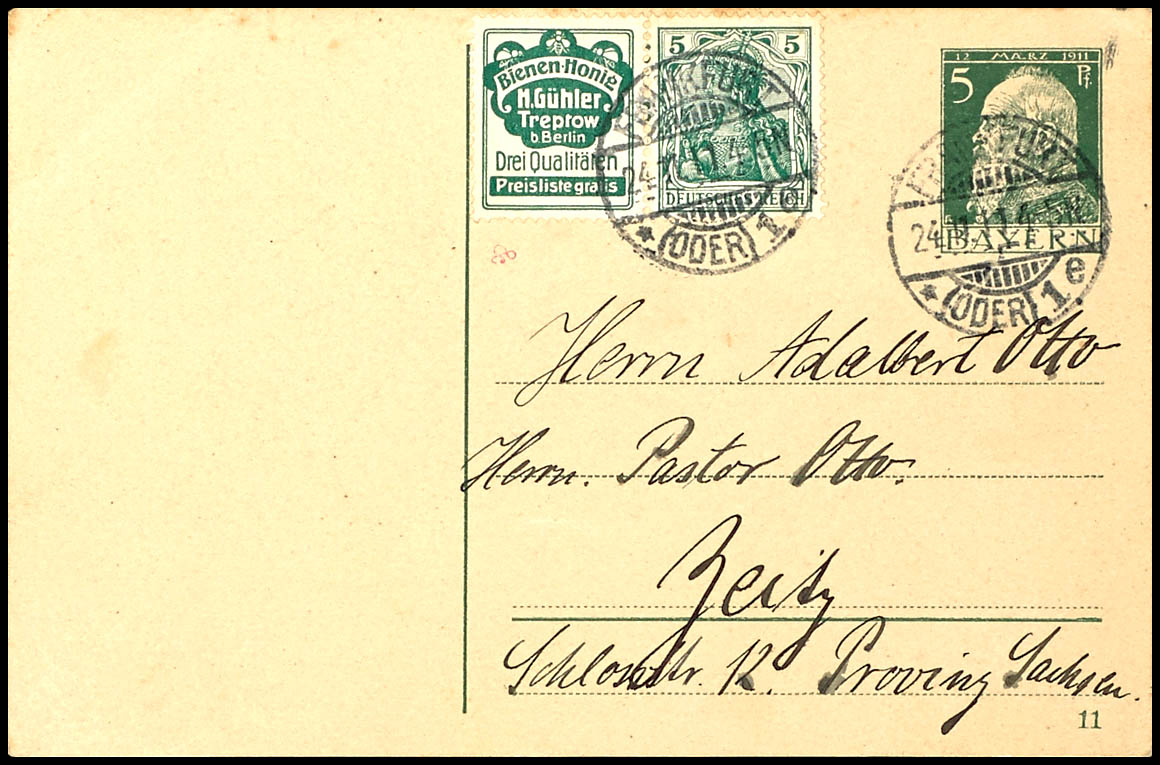 Bienen-Honig
H. Gühler
Treptow
b. Berlin
Drei Qualitäten
Preisliste gratis
5 5
DEUTSCHES REICH
FRANKFURT
(ODER) 1
12 MÄRZ 1911
5 Pf
BAYERN
FRANKFURT
24.11.11.4-5N
* (ODER) 1e
Herrn Adalbert Otto
Herrn. Pastor Otto.
Zeitz
Schlosstr. 12. Provinz Sachsen.
11